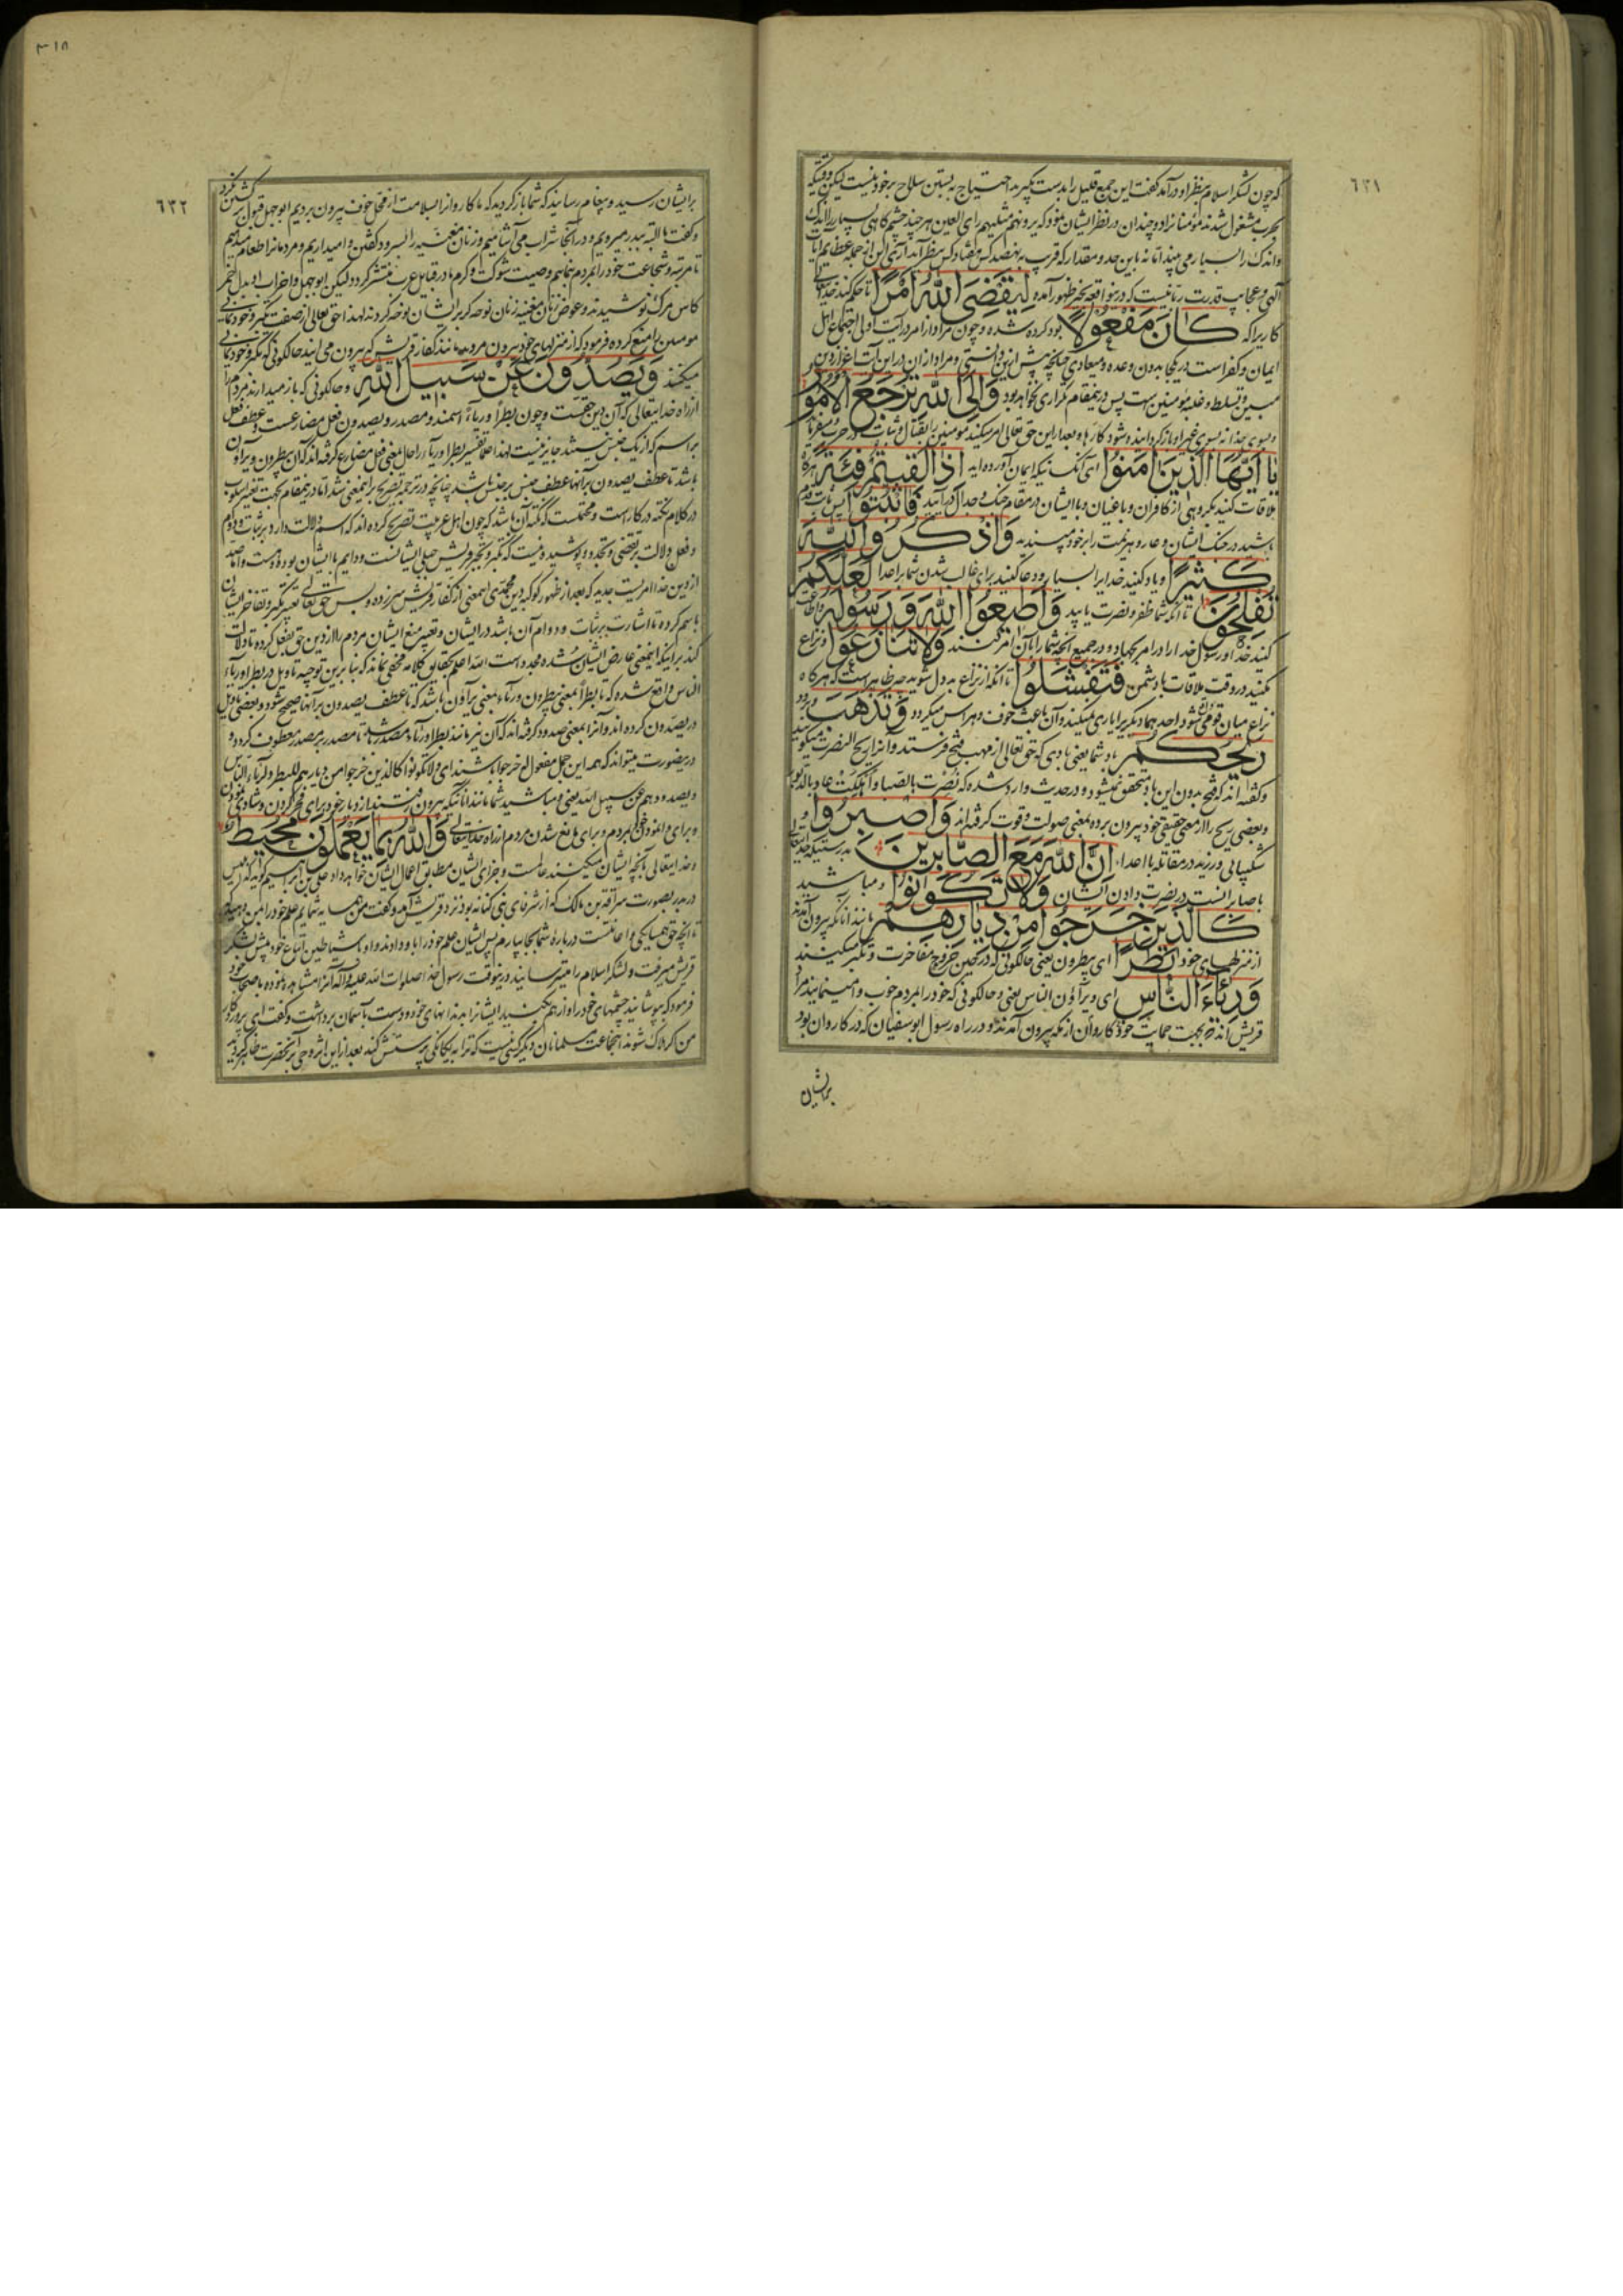 ٦٣١
که چون لشکر اسلام بنظر او در آمد گفت این جمع قلیل را بدست بگیرید احتیاج به بستن سلاح بر خود نیست لیکن وقتیکه
بحرب مشغول شدند مؤمنانرا دو چندان در نظر ایشان نمود که یرونهم مثلیهم رای العین هر چند چشم گاهی بسیار را اندک
و اندک را بسیار می بیند اما نه باین حد و مقدار که قریب به نهصد کس هفتاد کس بنظر آید آری این از جمله عظایم آیات
الهی و عجایب قدرت ربانیست که در واقعه بدر بظهور آمده لِيَقْضِيَ اللّٰهُ أَمْرًا تا حکم کند خدایتعالی
کاریرا که كَانَ مَفْعُولًا بود کرده شده و چون مراد از امر در آیت اولی اجتماع اهل
ایمان و کفر است در یکجا بدون وعده و میعادی چنانچه پیش ازین دانستی و مراد از آن در این آیت اعزاز دین
مبین و تسلط و غلبه مؤمنین است پس درینمقام تکراری نخواهد بود وَإِلَى اللّٰهِ تُرْجَعُ الْأُمُورُ
و بسوی خدا نه بسوی غیر او باز گردانیده شود کارها و بعد از این حق تعالی امر میکند مومنین را بقتال و ثبات در حرب
يَا أَيُّهَا الَّذِينَ آمَنُوا ای آنکسانیکه ایمان آورده اید إِذَا لَقِيتُمْ فِئَةً هرگاه
ملاقات کنید بگروهی از کافران و باغیان و با ایشان در مقام جنگ و جدال در آیید فَاثْبُتُوا پس ثابت قدم
باشید در جنگ ایشان و عار و هزیمت را بر خود مپسندید وَاذْكُرُوا اللّٰهَ
كَثِيرًا و یاد کنید خدا را بسیار و دعا کنید برای غالب شدن شما بر اعدا لَعَلَّكُمْ
تُفْلِحُونَ تا آنکه شما ظفر و نصرت یابید وَأَطِيعُوا اللّٰهَ وَرَسُولَهُ و اطاعت
کنید خدا و رسول خدا را در امر بجهاد و در جمیع آنچه شما را بآن امر کنند وَلَا تَنَازَعُوا و نزاع
مکنید در وقت ملاقات با دشمن فَتَفْشَلُوا تا آنکه از نزاع بد دل شوید چه ظاهر است که هرگاه
نزاع میان قومی شود احد هما دیگریرا یاری نمیکند و آن باعث خوف و هراس میگردد وَتَذْهَبَ و برود
رِيحُكُمْ باد شما یعنی بادی که حق تعالی از مهب فتح فرستد و آنرا ریح النصرت میگویند
و گفته اند که فتح بدون این باد متحقق نمیشود و در حدیث وارد شده که نُصرت بالصبا و اُهلکت عاد بالدبور
و بعضی ریح را از معنی حقیقی خود بیرون برده بمعنی صولت و قوت گرفته اند وَاصْبِرُوا و
شکیبایی ورزید در مقاتله با اعدا إِنَّ اللّٰهَ مَعَ الصَّابِرِينَ بدرستیکه خدایتعالی
با صابرانست در نصرت دادن ایشان وَلَا تَكُونُوا و مباشید
كَالَّذِينَ خَرَجُوا مِنْ دِيَارِهِمْ مانند آنانکه بیرون آمدند
از منزلهای خود بَطَرًا ای یبطرون یعنی حالکونی که در حین خروج مفاخرت و تکبر میکنند
وَرِئَاءَ النَّاسِ ای و یرآؤن الناس یعنی و حالکونی که خود را بمردم خوب وا مینمایند مراد
قریش اند که بجهت حمایت خود کاروان از مکه بیرون آمدند و در راه رسول ابوسفیان که در کاروان بود
برایشان
٣١٨
٦٣٢
بر ایشان رسید و پیغام رسانید که شما باز گردید که ما کاروانرا بسلامت از محل خوف بیرون بردیم ابو جهل قبول برگشتن نکرد
و گفت ما البته ببدر میرویم و در آنجا شراب می آشامیم و زنان مغنیه را بسرود گفتن وا میداریم و مردمانرا طعام میدهیم
تا مرتبه و شجاعت خود را بمردم بنمائیم و صیت شوکت و کرم ما در قبایل عرب منتشر گردد لیکن ابو جهل و احزاب او بدل الخمر
کاس مرک نوشیدند و عوض زنان مغنیه زنان نوحه گر بر ایشان نوحه کردند لهذا حق تعالی از صفت تکبر و خود نمائی
مومنین را منع کرده فرمود که از منزلهای خود بیرون مروید مانند کفار قریش که بیرون می ایند حالکونی که تکبر و خود نمائی
میکنند وَيَصُدُّونَ عَنْ سَبِيلِ اللّٰهِ و حالکونی که باز میدارند مردم را
از راه خدایتعالی که آن دین حقست و چون بطراً و ریآء اسمند و مصدر و یصدون فعل مضارعست و عطف فعل
بر اسم که از یک جنس نیستند جایز نیست لهذا علما تفسیر بطرا و ریآء را حال بمعنی فعل مضارع گرفته اند که آن یبطرون و یرآؤن
باشد تا عطف یصدون بر آنها عطف جنس بر جنس باشد چنانچه در ترجمه تصریح بر اینمعنی شد اما درینمقام بجهت تغییر اسلوب
در کلام نکته در کار است و محتملست که نکته آن باشد که چون اهل عربیت تصریح کرده اند که اسم دلالت دارد بر ثبات و دوام
و فعل دلالت بر تقضی و تجدد و پوشیده نیست که تکبر و تجبر قریش جبلی ایشانست و دایم با ایشان بوده و هست و اما صد
از دین خدا امریست جدید که بعد از ظهور کوکبه دین محمدی اینمعنی از کفار قریش سرزده و بس حق تعالی تعبیر تکبر و تفاخر ایشان
باسم کرده تا اشارت بر ثبات و دوام آن باشد در ایشان و تعبیر منع ایشان مردم را از دین حق بفعل کرده تا دلالت
کند بر اینکه اینمعنی عارض ایشان شده مجدد است الله اعلم بحقایق کلامه مخفی نماند که بنا برین توجیه تاویل در بطر و ریآء
الناس واقع شده که تا بطراً بمعنی یبطرون و ریآء بمعنی یرآؤن باشد که تا عطف یصدون بر آنها صحیح شود و بعضی تاویل
در یصدون کرده اند و آنرا بمعنی صدود گرفته اند که آن نیز مانند بطرا و ریآء مصدر باشد تا مصدر بر مصدر معطوف گردد و
درینصورت میتواند که همه این جمل مفعول له خرجوا باشند ای و لا تکونوا کالذین خرجوا من دیارهم للبطر و لریآء الناس
و لصدودهم عن سبیل الله یعنی و مباشید شما مانند آنانکه بیرون رفتند از دیار خود برای فخر کردن و شادی نمودن
و برای وا نمود خود بمردم و برای مانع شدن مردم از راه خدایتعالی وَاللّٰهُ بِمَا يَعْمَلُونَ مُحِيطٌ
و خدایتعالی بآنچه ایشان میکنند عالمست و جزای ایشان مطابق اعمال ایشان خواهد داد علی بن ابراهیم گوید که ابلیس
در بدر بصورت سراقة بن مالک که از شرفای بنی کنانه بود نزد قریش آمد و گفت من همسایه شمایم علم خود را بمن دهید
تا آنچه حق همسایگی و اعانتست درباره شما بجا بیارم پس ایشان علم خود را باو دادند و او با شیاطین اتباع خود پیش لشکر
قریش میرفت و لشکر اسلام را میترسانید درینوقت رسول خدا صلوات الله علیه و آله آنرا مشاهده نموده باصحاب خود
فرمود که بپوشانید چشمهای خود را و از هم مکنید ایشانرا بدندانهای خود و دست بآسمان برداشت و گفت ای پروردگار
من اگر هلاک شوند اینجماعت مسلمانان دیگر کسی نیست که ترا به یگانگی پرستش کند بعد از این اثر وحی بر آنحضرت ظاهر گردید